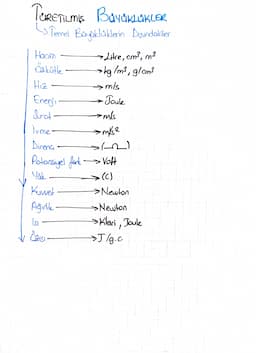 TÜRETİLMİŞ BÜYÜKLÜKLER
Temel Büyüklüklerin Dışındakiler
Hacim → Litre, cm³, m³
Özkütle → kg/m³, g/cm³
Hız → m/s
Enerji → Joule
Sürat → m/s
İvme → m/s²
Direnç → (Ω)
Potansiyel fark → Volt
Yük → (C)
Kuvvet → Newton
Ağırlık → Newton
Isı → Kalori, Joule
→ J/g.c